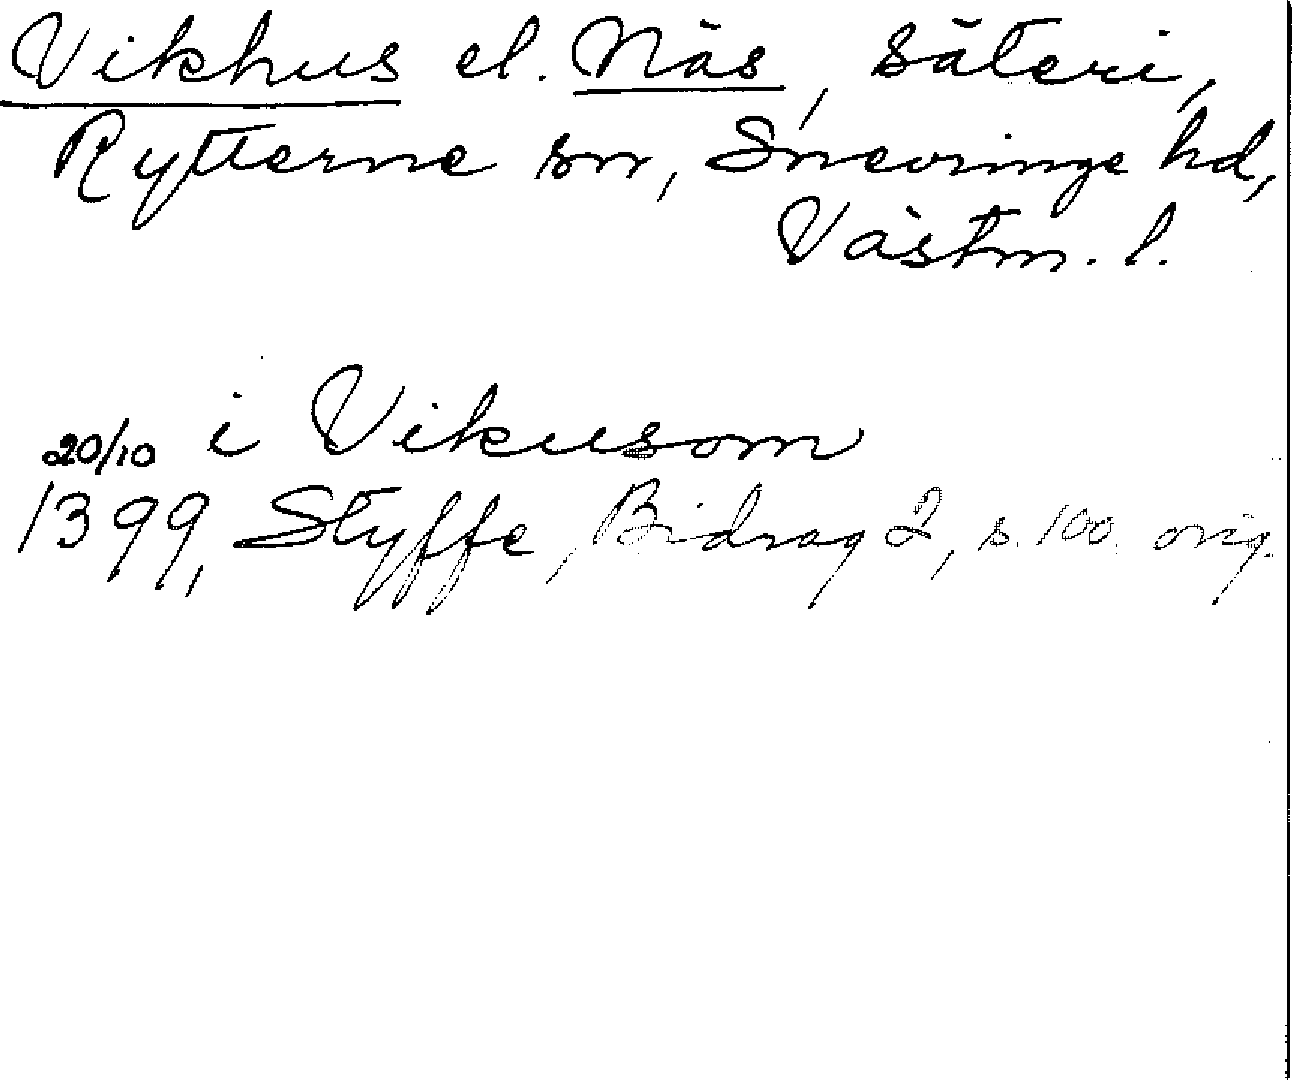 Vikhus el. Näs, säteri,
Rytterne sn, Snevringe hd,
Västm. l.
20/10 i Vikusom
1399, Styffe, Bidrag 2, s. 100. orig.